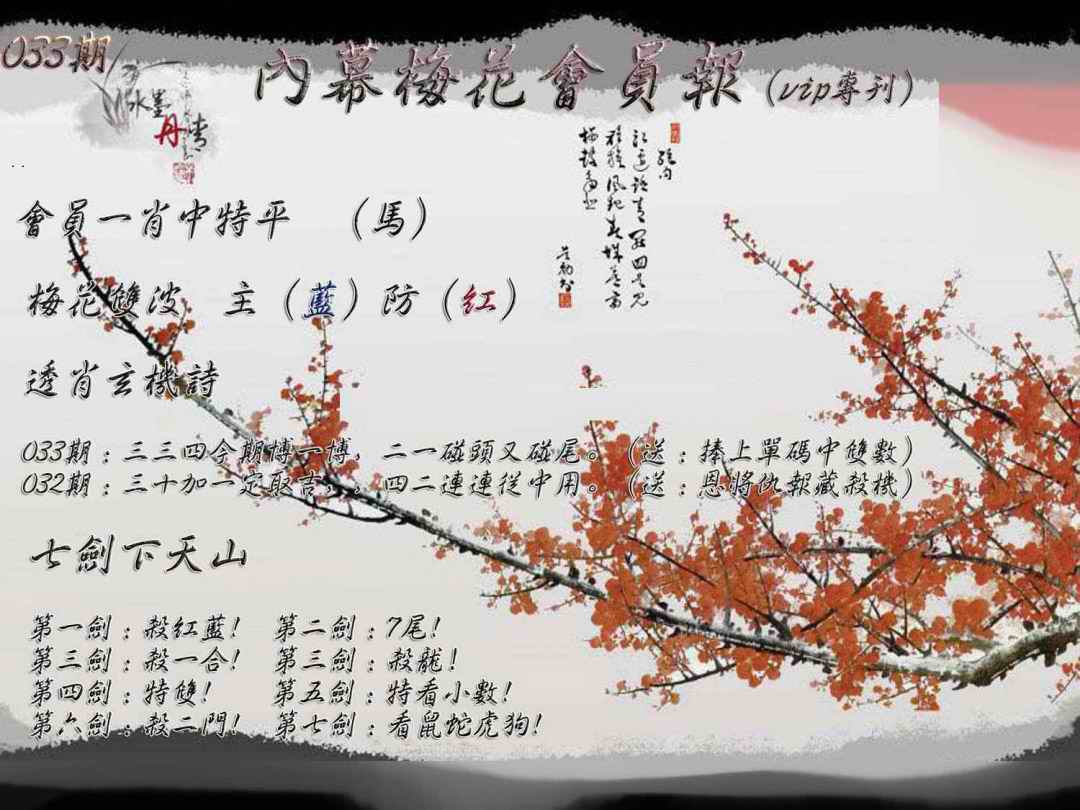 033期
內幕梅花會員報(vip專刊)
水墨
丹青
會員一肖中特平 （馬）
梅花雙波 主（藍）防（紅）
透肖玄機詩
033期：三三四今期博一博，二一碰頭又碰尾。（送：捧上單碼中雙數）
032期：三十加一定取吉，四二連連從中用。（送：恩將仇報藏殺機）
七劍下天山
第一劍：殺紅藍! 第二劍：7尾!
第三劍：殺一合! 第三劍：殺龍!
第四劍：特雙! 第五劍：特看小數!
第六劍：殺二門! 第七劍：看鼠蛇虎狗!